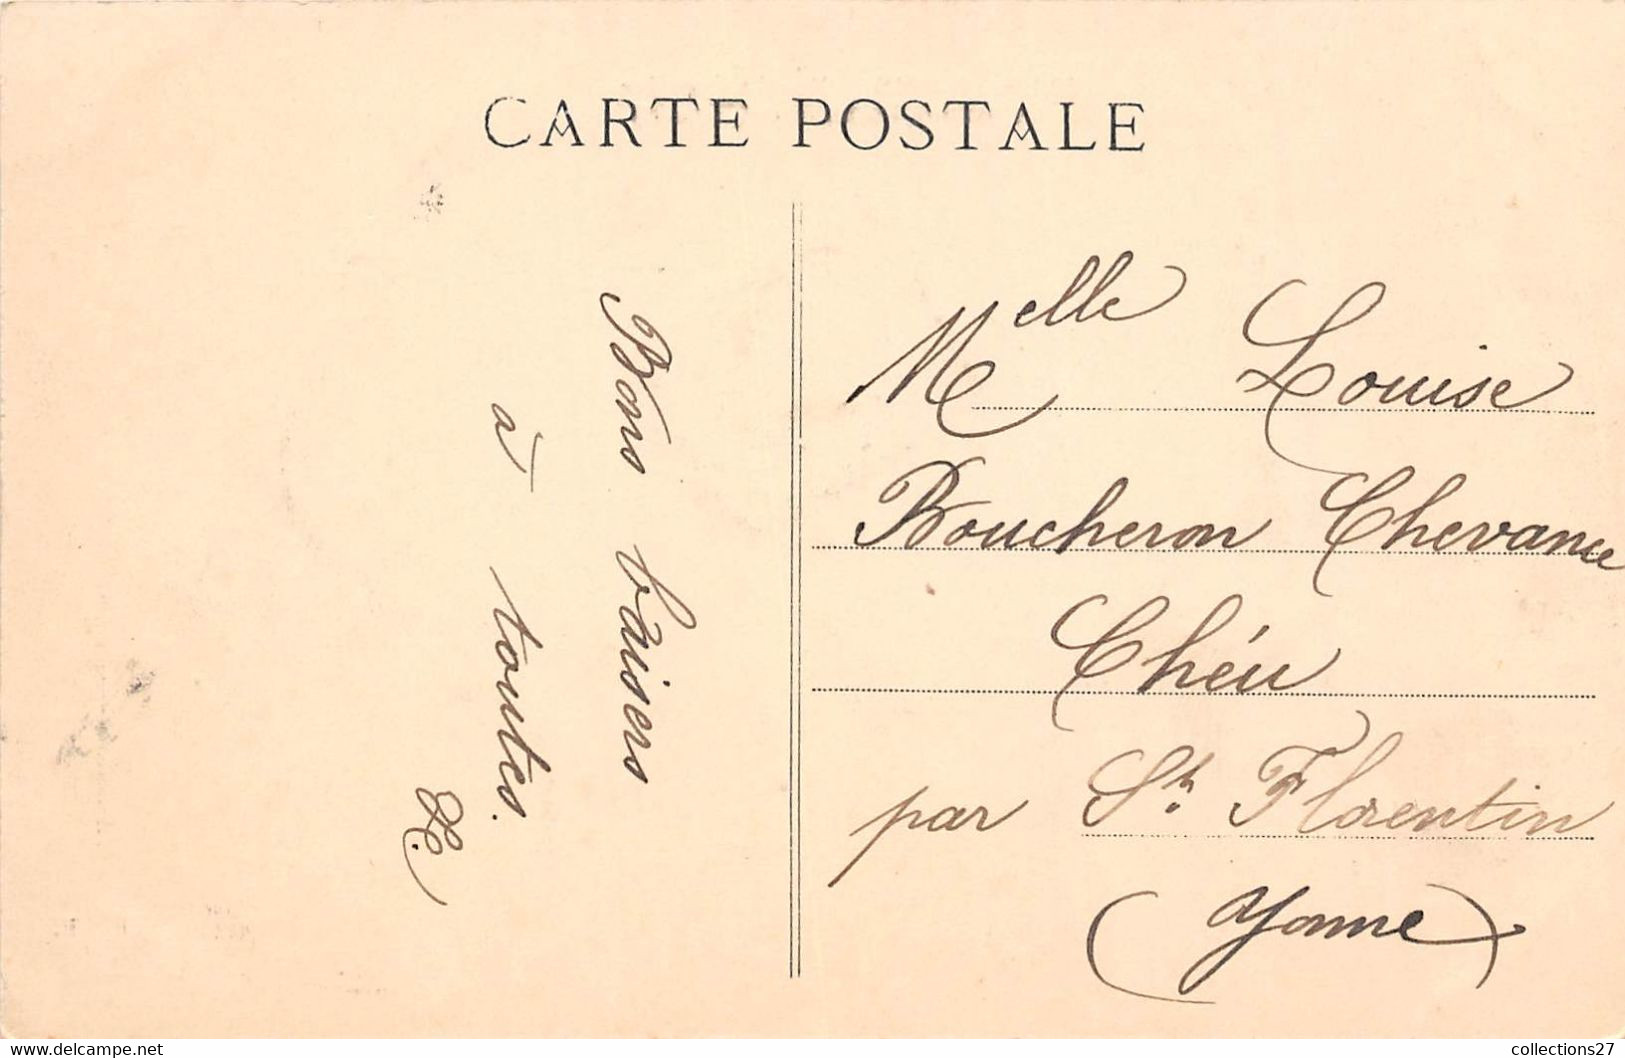 CARTE POSTALE
Bons baisers
à toutes.
Melle Louise
Boucheron Chevance
Chéu
par St Florentin
(Yonne)
www.delcampe.net
collections27